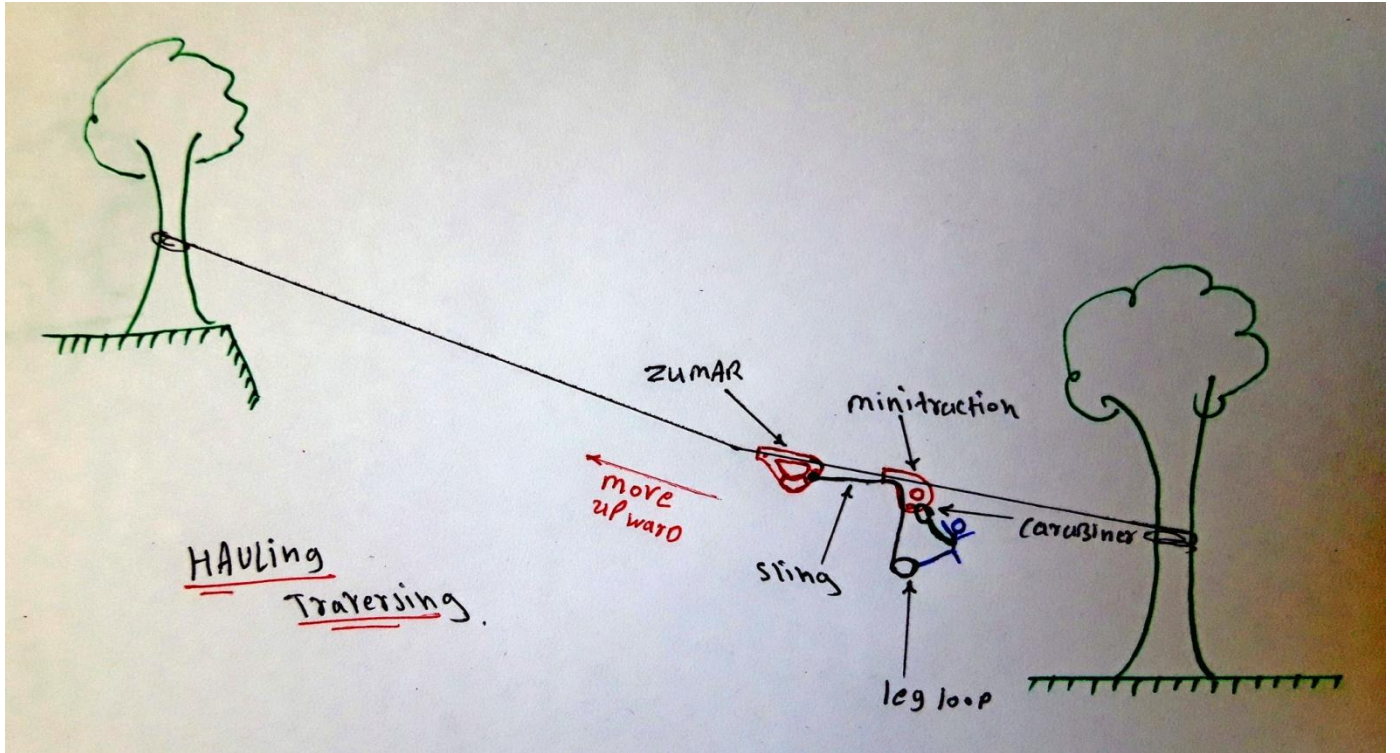 ZUMAR
minitraction
move
upward
carabiner
HAULing
Traversing.
sling
leg loop